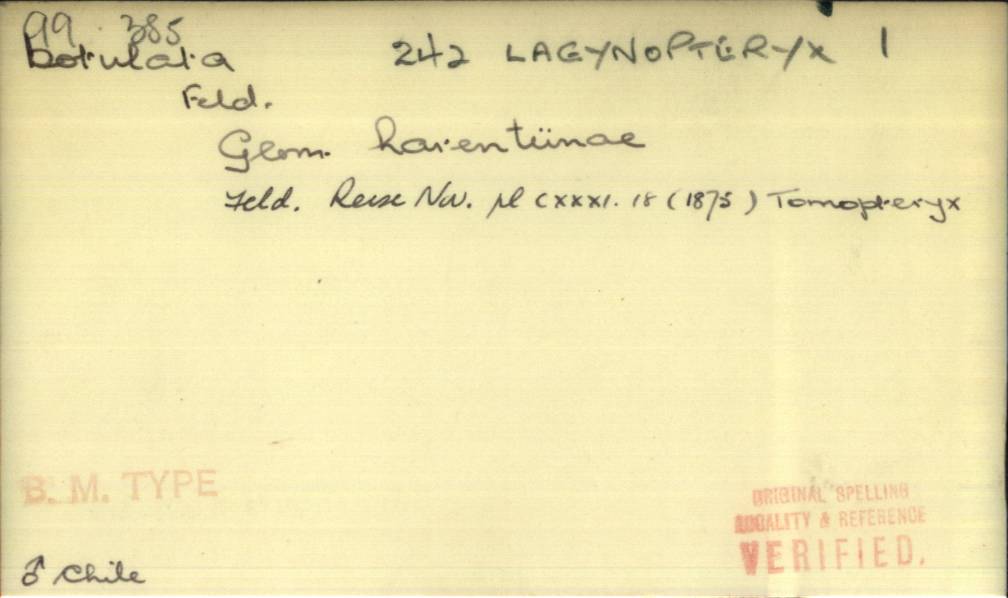 99. 385
botulata 242 LAGYNOPTERYX 1
Feld.
Geom. Larentiinae
Feld. Reise Nov. pl CXXXI. 18 (1875) Tomopteryx
B. M. TYPE
ORIGINAL SPELLING
LOCALITY & REFERENCE
VERIFIED.
♂ Chile